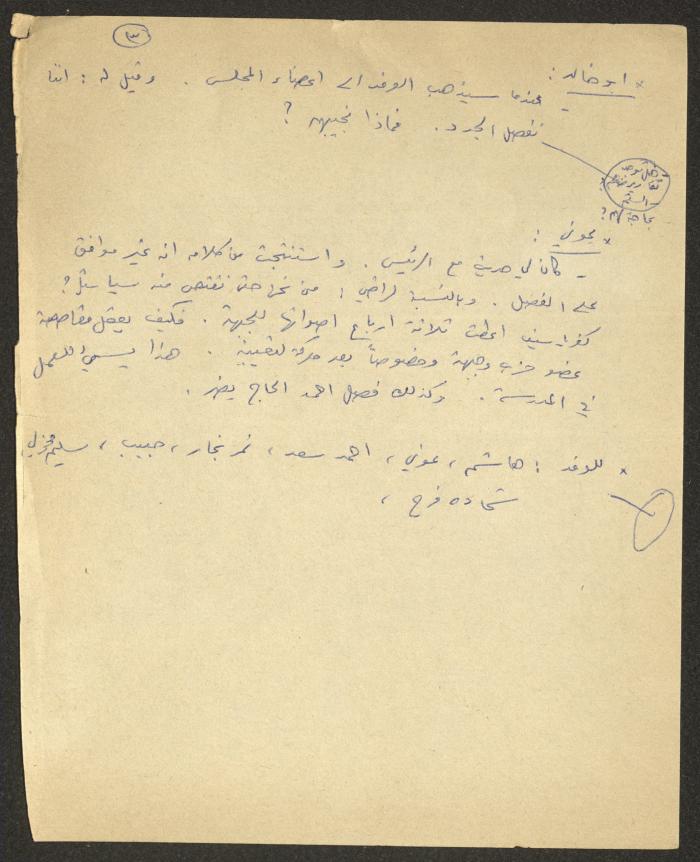 ٣
* ابو خالد :
عندما سيذهب الوفد الى اعضاء المجلس . وقيل له : اننا
نفصل الجدد . فماذا نجيبه ؟
بحاجة لهم ؟
* عوني :
- كان لي حديث مع الرئيس . واستنتجت من كلامه انه غير موافق
على الفصل . وبالنسبة لراضي : من نحن حتى نقتص منه سياسياً ؟
كفر ياسيف اعطت ثلاثة ارباع اصواتها للجبهة . فكيف يعقل مقاصصة
عضو حزب وجبهة وخصوصاً بعد معركة نقابية . هذا يسيء للعمل
في المدرسة . وكذلك فصل احمد الحاج يضر .
* للوفد : هاشم ، عوني ، احمد سعد ، نمر نجار ، حبيب ، سليم مخولي
شحاده فرح ،